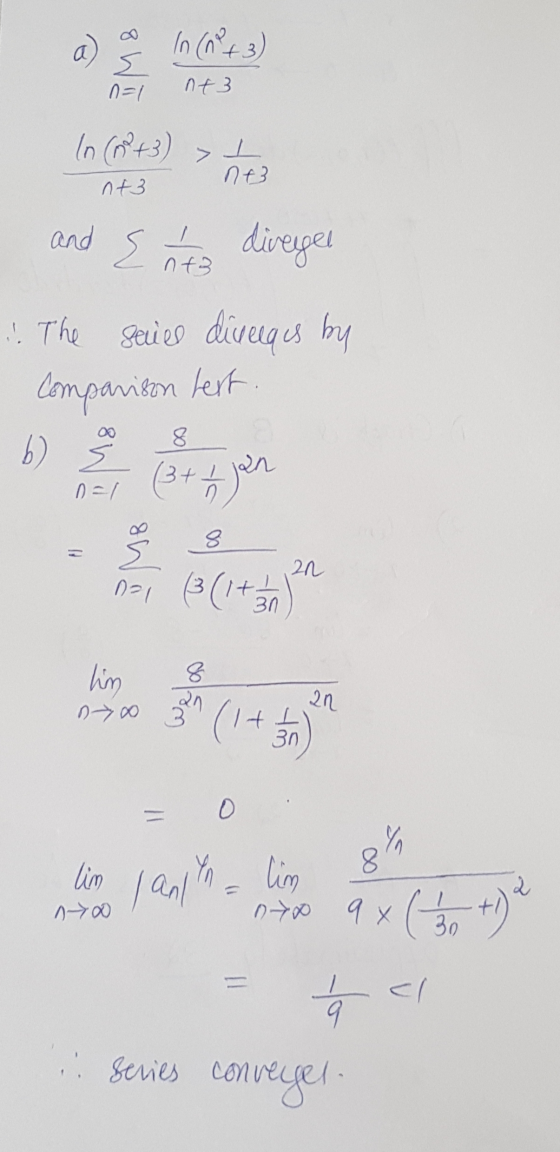 a) ∞ Σ n=1 ln(n²+3) / n+3
ln(n²+3) / n+3 > 1 / n+3
and Σ 1 / n+3 diverges
∴ The series diverges by
Comparison test.
b) ∞ Σ n=1 8 / (3 + 1/n)^2n
= ∞ Σ n=1 8 / (3(1 + 1/3n)^2n
lim n→∞ 8 / 3^2n (1 + 1/3n)^2n
= 0
lim n→∞ |an|^1/n = lim n→∞ 8^1/n / 9 × (1/3n + 1)^2
= 1/9 < 1
∴ series converges.